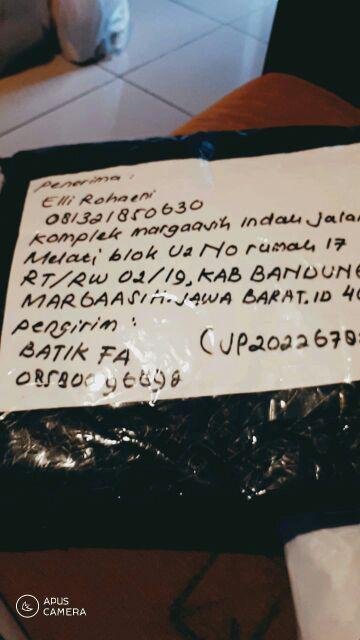 Penerima :
Elli Rohaeni
081321850630
Komplek margaasih Indah Jalan
Melati blok U2 No rumah 17
RT/RW 02/19, KAB BANDUNG
MARGAASIH. JAWA BARAT. ID 40
Pengirim :
BATIK FA (JP202267
APUS
CAMERA